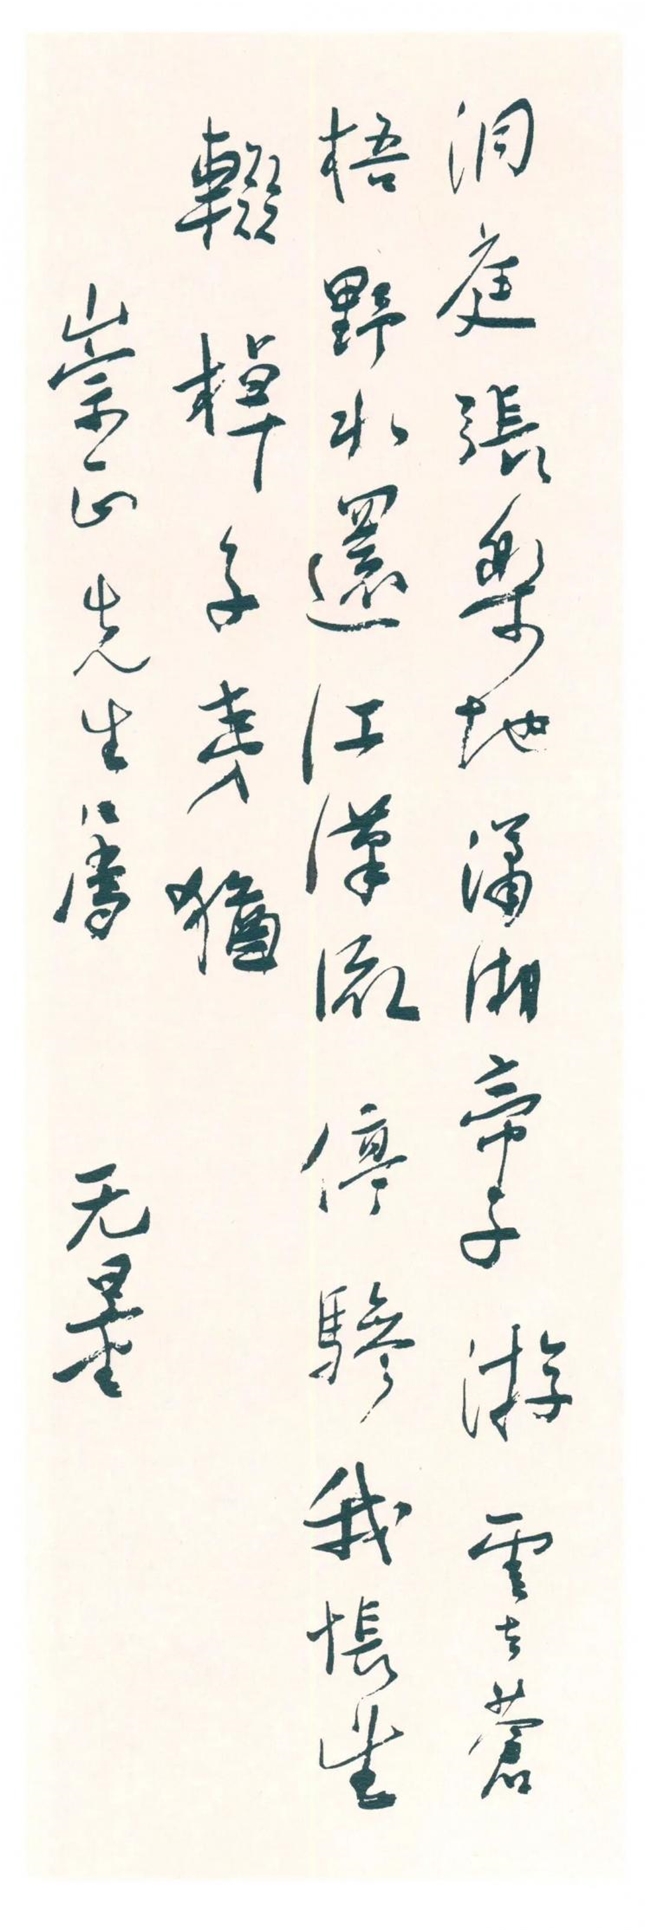 洞庭張樂地瀟湘帝子游雲去蒼
梧野水還江漢流停驂我悵望
輟棹子夷猶
崇正先生屬 无量